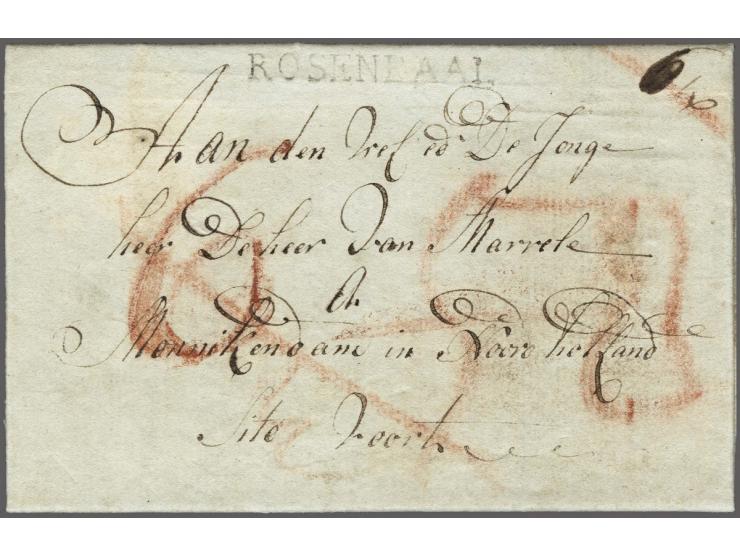 ROSENDAAL
6
Aan den Wel ed De Jonge
heer De heer Van Marrele
a
Monnikendam in Noord holland
Sito Voort